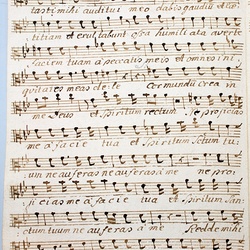 tasti mihi auditui meo dabis gaudiu et læ
titiam et exultabunt ossa humiliata averte
faciem tuam a peccatis meis et omnes ini
quitates meas dele Cor mundu crea in
me Deus et spiritum rectum Ne projicias
me a facie tua et Spiritum Sctum tu
um ne auferas ne auferas a me ne pro
jicias me a facie tua et Spiritum San
ctum tuum ne auferas a me Redde mihi